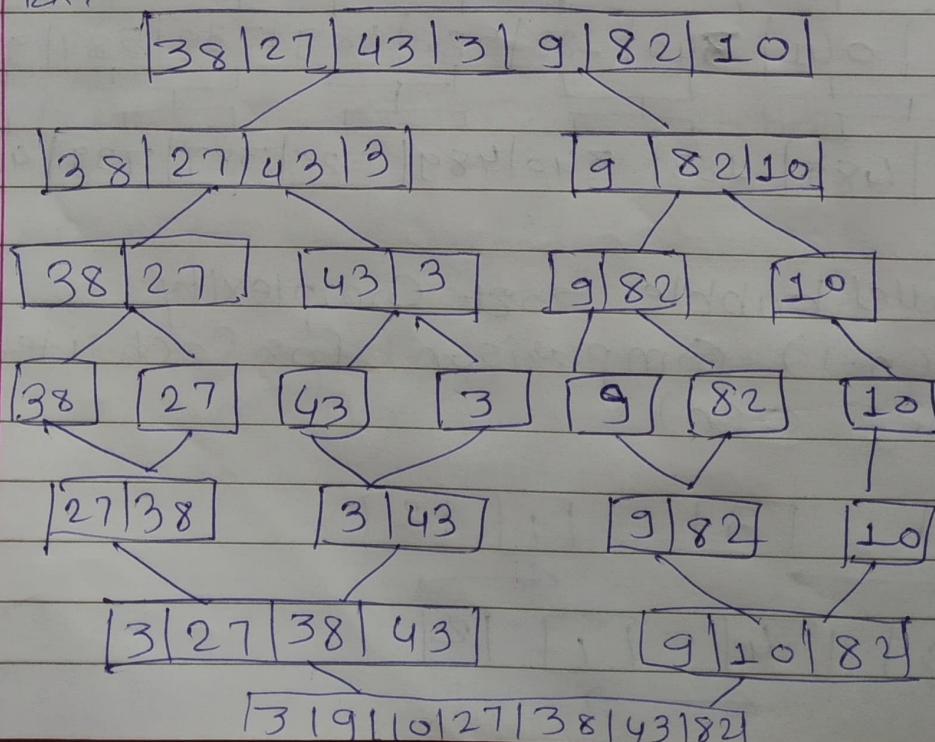 38 | 27 | 43 | 3 | 9 | 82 | 10
38 | 27 | 43 | 3    9 | 82 | 10
38 | 27    43 | 3    9 | 82    10
38    27    43    3    9    82    10
27 | 38    3 | 43    9 | 82    10
3 | 27 | 38 | 43    9 | 10 | 82
3 | 9 | 10 | 27 | 38 | 43 | 82